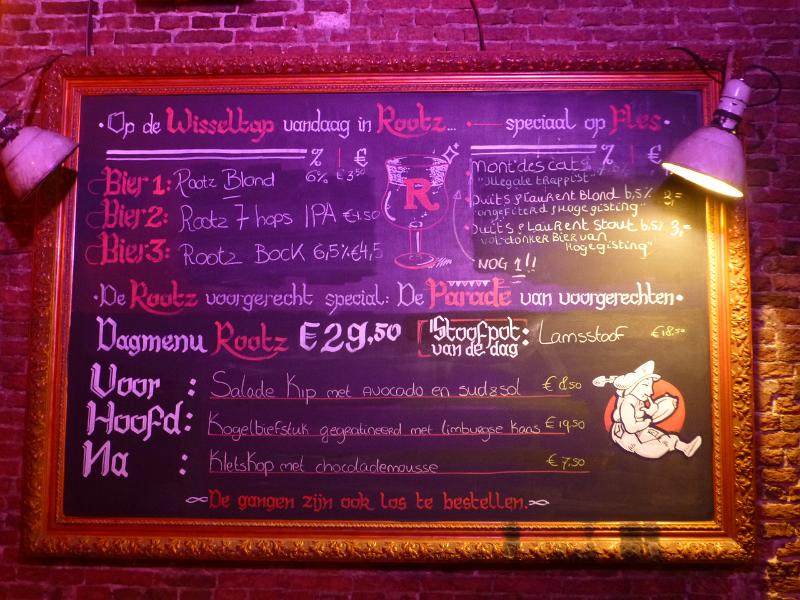 ·Op de Wisseltap vandaag in Rootz... speciaal op Fles·
% | €
Bier 1: Rootz Blond 6% €3,50
Bier 2: Rootz 7 hops IPA €4,50
Bier 3: Rootz Bock 6,5% €4,5
R
% €
Mont des cats
"Illegale trappist"
Duits & Laurent Blond 6,5% 3,=
"ongefilterd Hoge gisting"
Duits & Laurent Stout 6,5% 3,=
vol-donker Bier van
Hoge gisting"
NOG 1!!
·De Rootz voorgerecht special: De Parade van voorgerechten·
Dagmenu Rootz €29,50 Stoofpot van de dag: Lamsstoof €18,50
Voor : Salade Kip met avocado en sud&sol €8,50
Hoofd: Kogelbiefstuk gegratineerd met limburgse kaas €19,50
Na : Kletskop met chocolademousse €7,50
De gangen zijn ook los te bestellen.